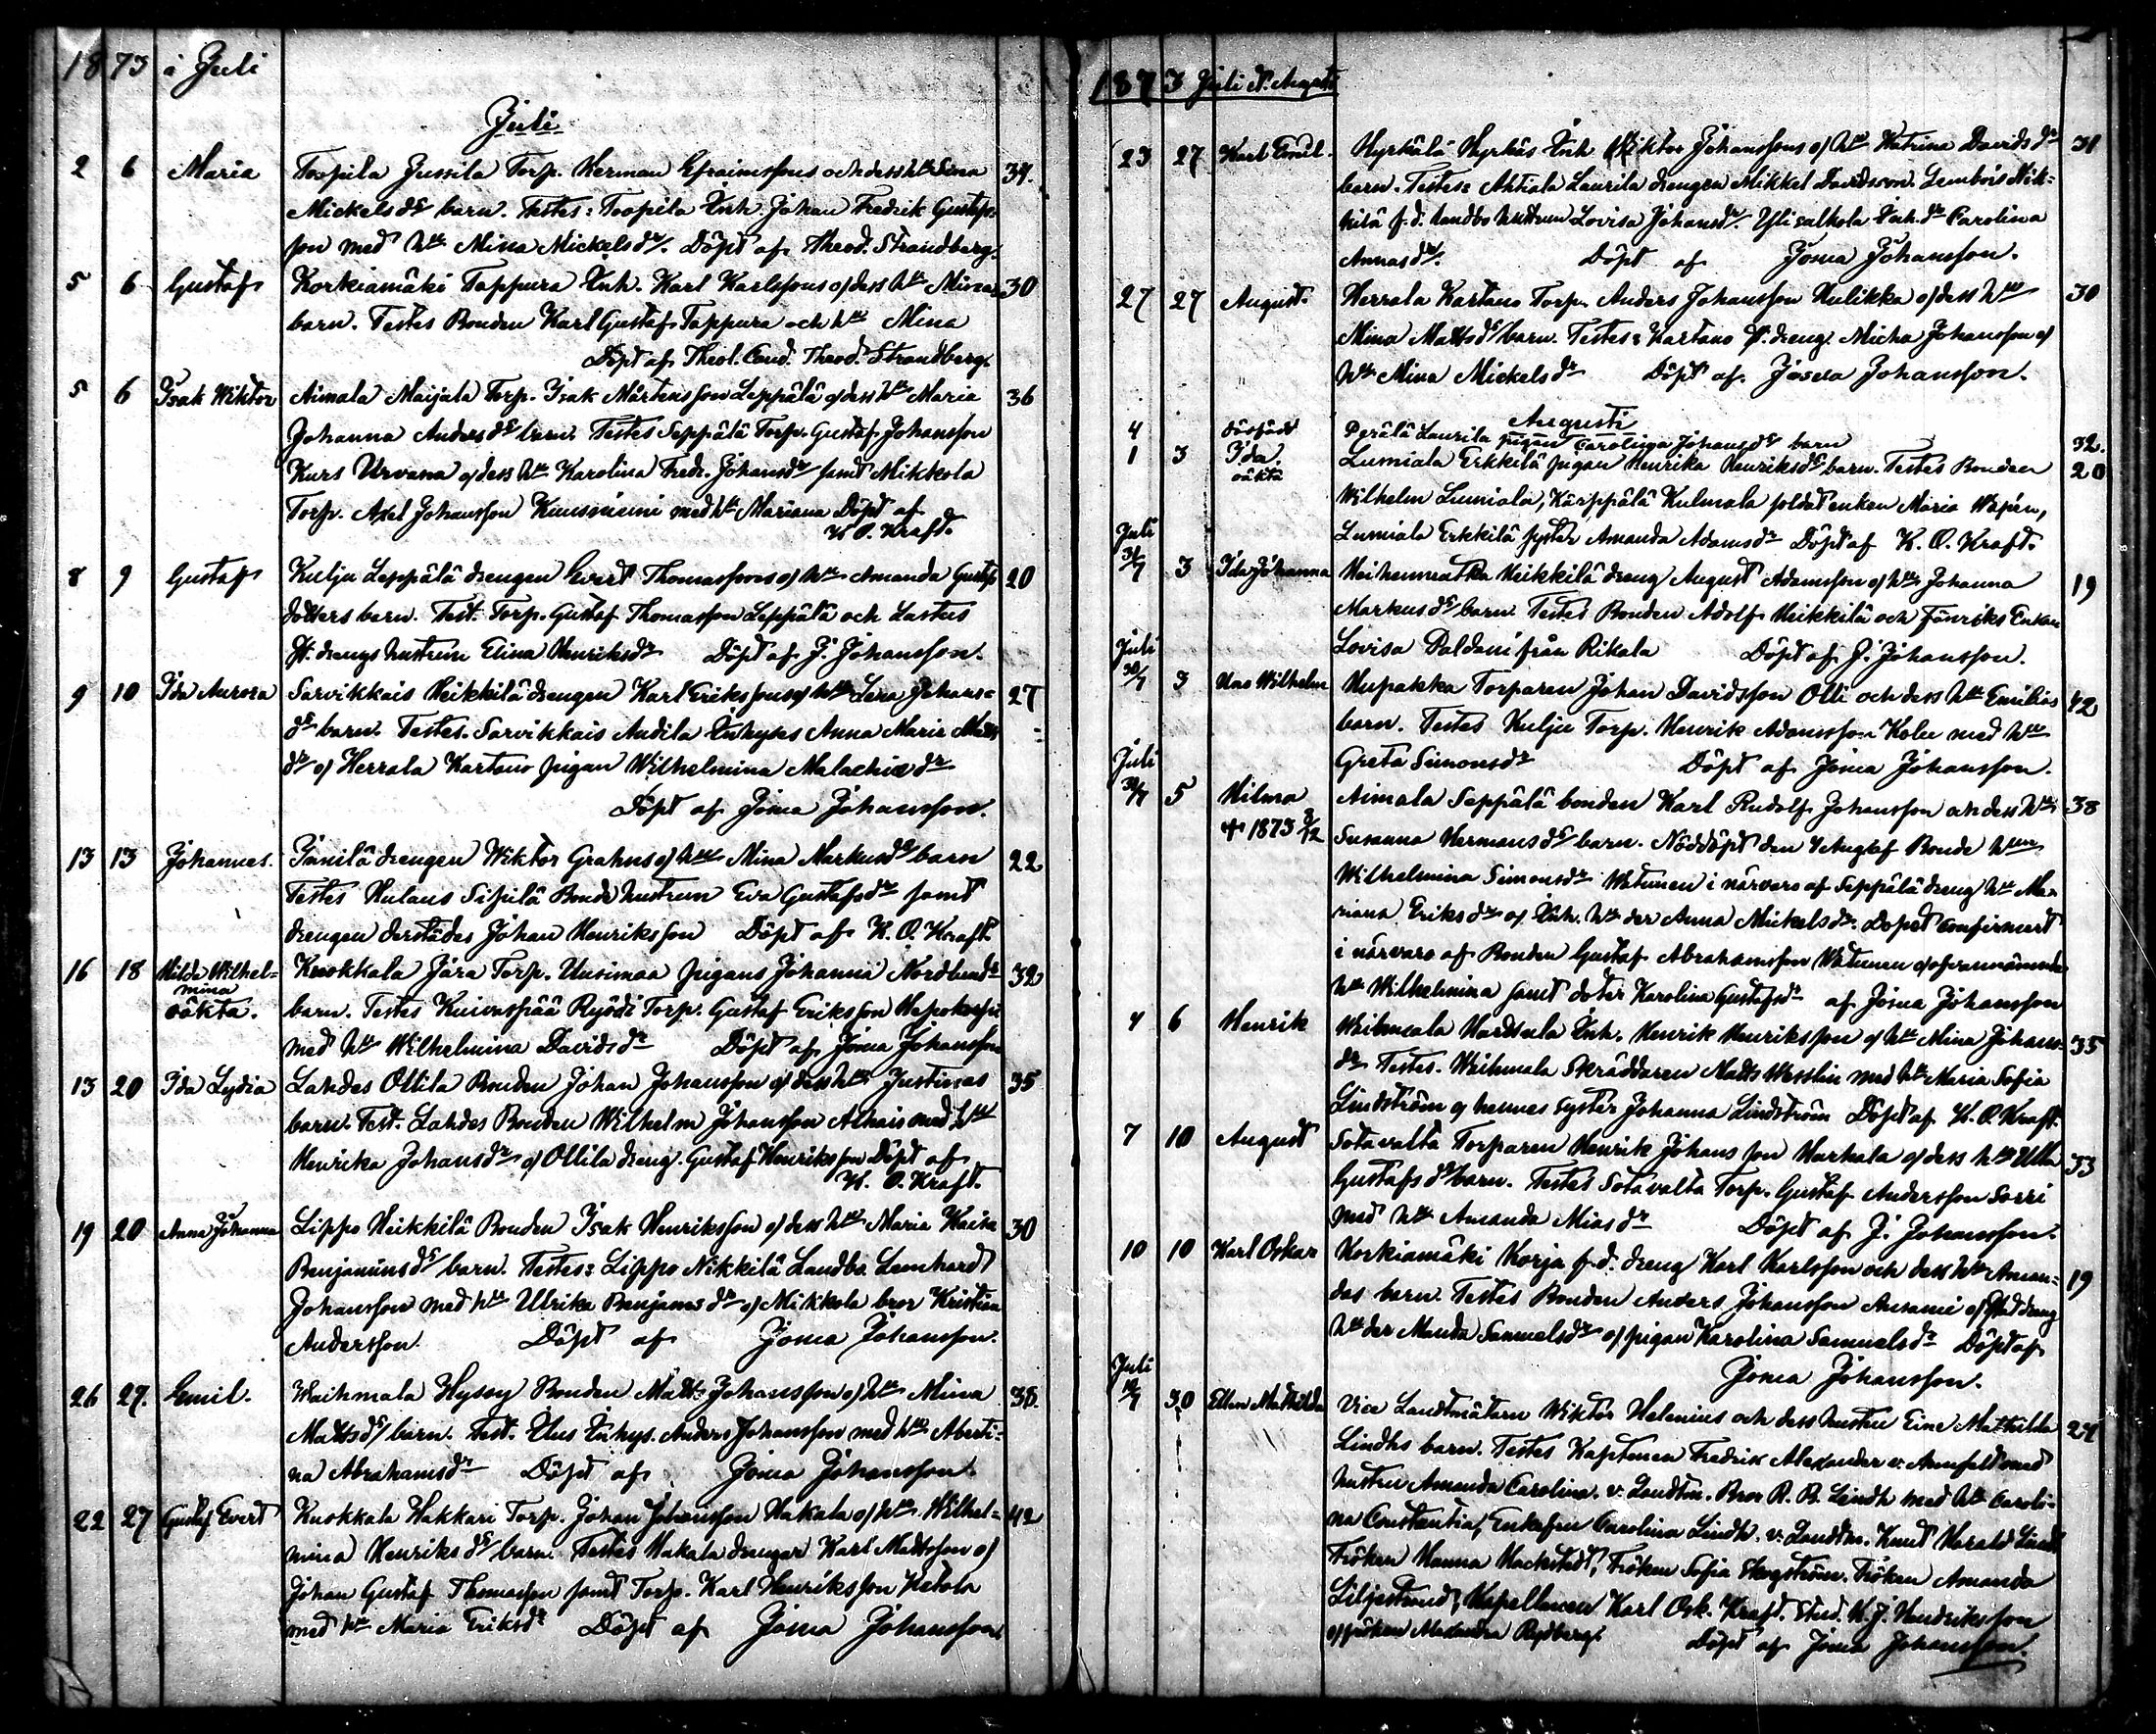 1873 i Juli
Juli
2 6 Maria Toopila Jussila Torp. Herman Efraimssons och dess hu Lena 34.
Mickelsdrs barn. Testes: Toopila Inh. Johan Fredrik Gustafs-
son med hu Mina Mickelsdr. Döpt af Theod. Strandberg.
5 6 Gustaf Korkiamäki Tappura Inh. Karl Karlssons o dess hu Minas 30
barn. Testes Bonden Karl Gustaf Tappura och hu Mina
Döpt af Theol. Cand. Theod. Strandberg.
5 6 Isak Wiktor Aimala Maijala Torp. Isak Mårtensson Leppälä o dess hu Maria 36
Johanna Andersdrs barn. Testes Seppälä Torp. Gustaf Johansson
Kurs Urvana o dess hu Karolina Fredr. Johansdr samt Mikkola
Torp. Axel Johansson med hu Mariana Döpt af
K. O. Kraft.
8 9 Gustaf Kulju Leppälä drengen Evert Thomassons o hu Amanda Gustafs 20
dotters barn. Test. Torp. Gustaf Thomasson Leppälä och Lastus
St. drengs hustrun Elina Henriksdr Döpt af J. Johansson.
9 10 Ida Aurora Sarvikkais Heikkilä drengen Karl Erikssons o hu Lena Johans= 27
drs barn. Testes. Sarvikkais Andila Inhyses Anna Maria Matts
dr o Herrala Kartano pigan Wilhelmina Malachiædr
Döpt af Josua Johansson.
13 13 Johannes. Jänilä drengen Wiktor Grahns o hu Mina Markusdrs barn 22
Testes Hulaus Sipilä Bonde hustrun Eva Gustafsdr samt
drengen derstädes Johan Henriksson Döpt af K. O. Kraft.
16 18 Hilda Wilhel= Kuokkala Jära Torp. Uusimaa pigans Johanna Nordlunds 32
mina
oäkta. barn. Testes Kuivaspää Ryödi Torp. Gustaf Eriksson Hapokorpi
med hu Wilhelmina Davidsdr Döpt af Josua Johansson
13 20 Ida Lydia Lahdes Ollila Bonden Johan Johansson o dess hu Justinas 35
barn. Test. Lahdes Bonden Wilhelm Johansson Alhais med hu
Henrika Johansdr o Ollila dreng. Gustaf Henriksson Döpt af
K. O. Kraft.
19 20 Anna Johanna Lippo Heikkilä Bonden Isak Henriksson o dess hu Maria Kaisa 30
Benjaminsdrs barn. Testes: Lippo Nikkilä Landbo Lennhard
Johansson med hu Ulrika Benjamsdr o Mikkola bror Kristian
Andersson. Döpt af Josua Johansson.
26 27. Emil. Waihmala Hyssy Bonden Matts Johansson o hu Mina 38.
Mattsdrs barn. Test. Uus Inhys. Anders Johansson med hu Aberti=
na Abrahamsdr Döpt af Josua Johansson.
22 27 Gustaf Evert Kuokkala Hakkari Torp. Johan Johansson Hakala o hu Wilhel= 42
mina Henriksdrs barn. Testes Hakala drengar Karl Mattsson o
Johan Gustaf Thomasson samt Torp. Karl Henriksson Ketola
med hu Maria Eriksdr Döpt af Josua Johansson.
1873 Juli o. Augusti
23 27 Karl Emil. Hyrkälä Hyrkäs Inh Wiktor Johanssons o hu Katrina Davidsdrs 31
barn. Testes: Ahtiala Laurila drengen Mikkel Davidsson. Lembois Nik=
kilä f.d. landbo hustrun Lovisa Johansdr. Ylisalkola Inh.dr Carolina
Annasdr. Döpt af Josua Johansson.
27 27 August. Herrala Kartano Torp. Anders Johansson Hulikka o dess hu 30
Mina Mattsdrs barn. Testes: Kartano St. dreng. Micha Johansson o
hu Mina Mickelsdr Döpt af Josua Johansson.
Augusti
4 dödfödt Perälä Laurila pigan Carolina Johansdrs barn 32.
1 3 Ida. Lumiala Erkkilä pigan Henrika Henriksdrs barn. Testes Bonden 20
oäkta Wilhelm Lumiala, Kärppälä Kulmala soldat enkan Maria Wapén,
Lumiala Erkkilä syster Amanda Adamsdr Döpt af K. O. Kraft.
Juli
31/7 3 Ida Johanna Heikkilä dreng August Adamsson o hu Johanna 19
Markusdrs barn. Testes Bonden Adolf Heikkilä och Fänriks Enkan
Lovisa Paldani från Rikala Döpt af J. Johansson.
Juli
30/7 3 Uno Wilhelm Hupakka Torparen Johan Davidsson Olli och dess hu Emilias 42
barn. Testes Kulju Torp. Henrik Adamsson Kolu med hu
Greta Simonsdr Döpt af Josua Johansson.
Juli
30/7 5 Hilma Aimala Seppälä bonden Karl Rudolf Johansson och dess hu 38
+ 1873 3/12 Susanna Hermansdrs barn. Nöddöpt den 4 Aug af Bonde hun
Wilhelmina Simonsdr Watunen i närvaro af Seppälä dreng hu Ma-
riana Eriksdr o Inh. hu der Anna Mickelsdr. Dopet confirmert
i närvaro af Bonden Gustaf Abrahamsson Watunen o ofvannämnda
hu Wilhelmina samt doter Karolina Gustafsdr af Josua Johansson
4 6 Henrik Waihmala Hardsela Inh. Henrik Henriksson o hu Mina Johans= 35
dr Testes. Waihmala Skräddaren Matts Wesslin med hu Maria Sofia
Lindström o hennes syster Johanna Lindström Döpt af K. O. Kraft.
7 10 August Sotavalta Torparen Henrik Johansson Harhala o dess hu Ulla 33
Gustafsdrs barn. Testes Sotavalta Torp. Gustaf Andersson Sorri
med hu Amanda Miasdr Döpt af J. Johansson.
10 10 Karl Oskar Korkiamäki Korja f.d. dreng Karl Karlsson och dess hu Aman= 19
das barn. Testes Bonden Anders Johansson Ansami o Stad dreng
hu der Manda Samuelsdr o pigan Karolina Samuelsdr Döpt af
Josua Johansson.
Juli
/7 30 Ellen Mathilda Vice Landtmätarn Wiktor Helenius och dess hustru Eine Mathilda 24
Lindhs barn. Testes Kaptenen Fredrik Alexander v. Armfelt med
hustru Amanda Carolina. v. Landtm. Bror R. B. Lindh med hu Caroli-
na Constantia, Enkefru Carolina Lindh. v. Landtm. Knut Harald Lindh
Fröken Hanna Hackstedt, Fröken Sofia Skogström. Fröken Amanda
Liljestrand, Kapellanen Karl Osk. Kraft. Stud. K. J. Hendriksson
o fröken Alexandra Rydberg. Döpt af Josua Johansson.